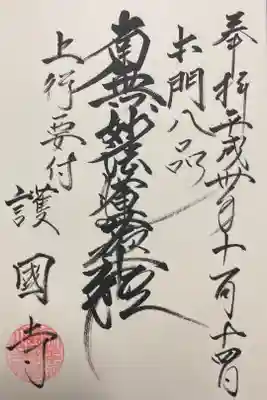 奉拝平成卅年十一月十四日
本門八品
南無妙法蓮華経
上行要付
護國寺